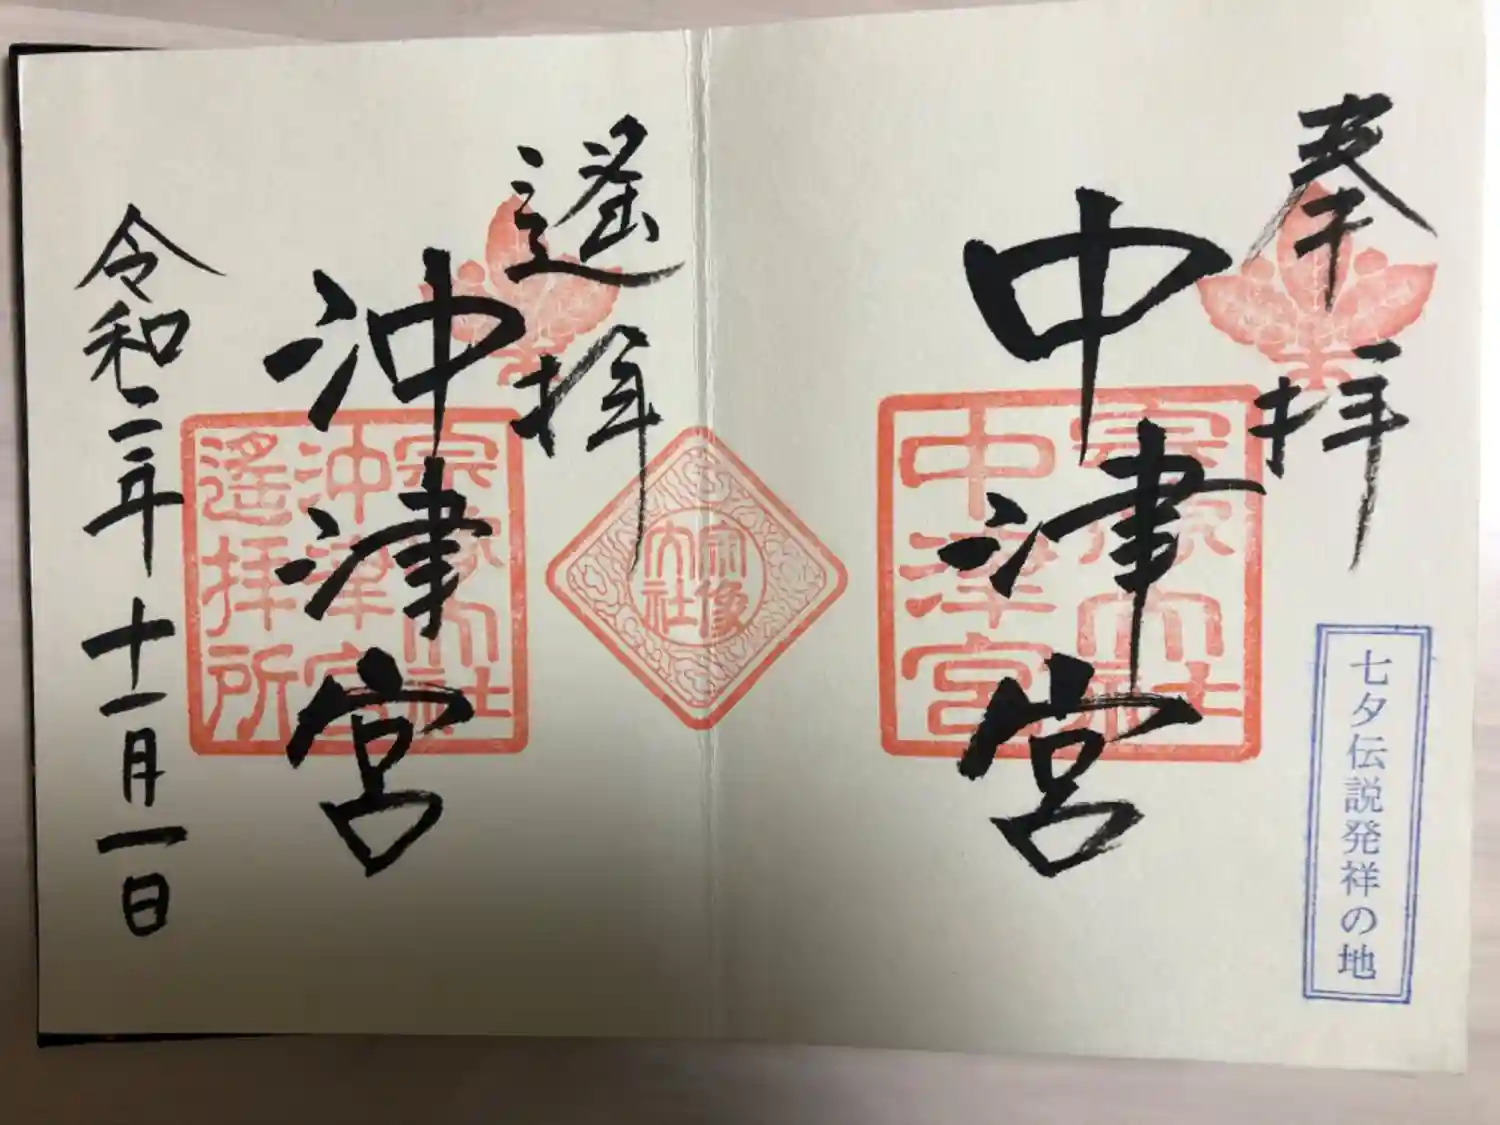 奉拝
中津宮
宗像大社
中津宮
七夕伝説発祥の地
宗像
大社
遙拝
沖津宮
宗像大社
沖津宮
遙拝所
令和二年十一月一日